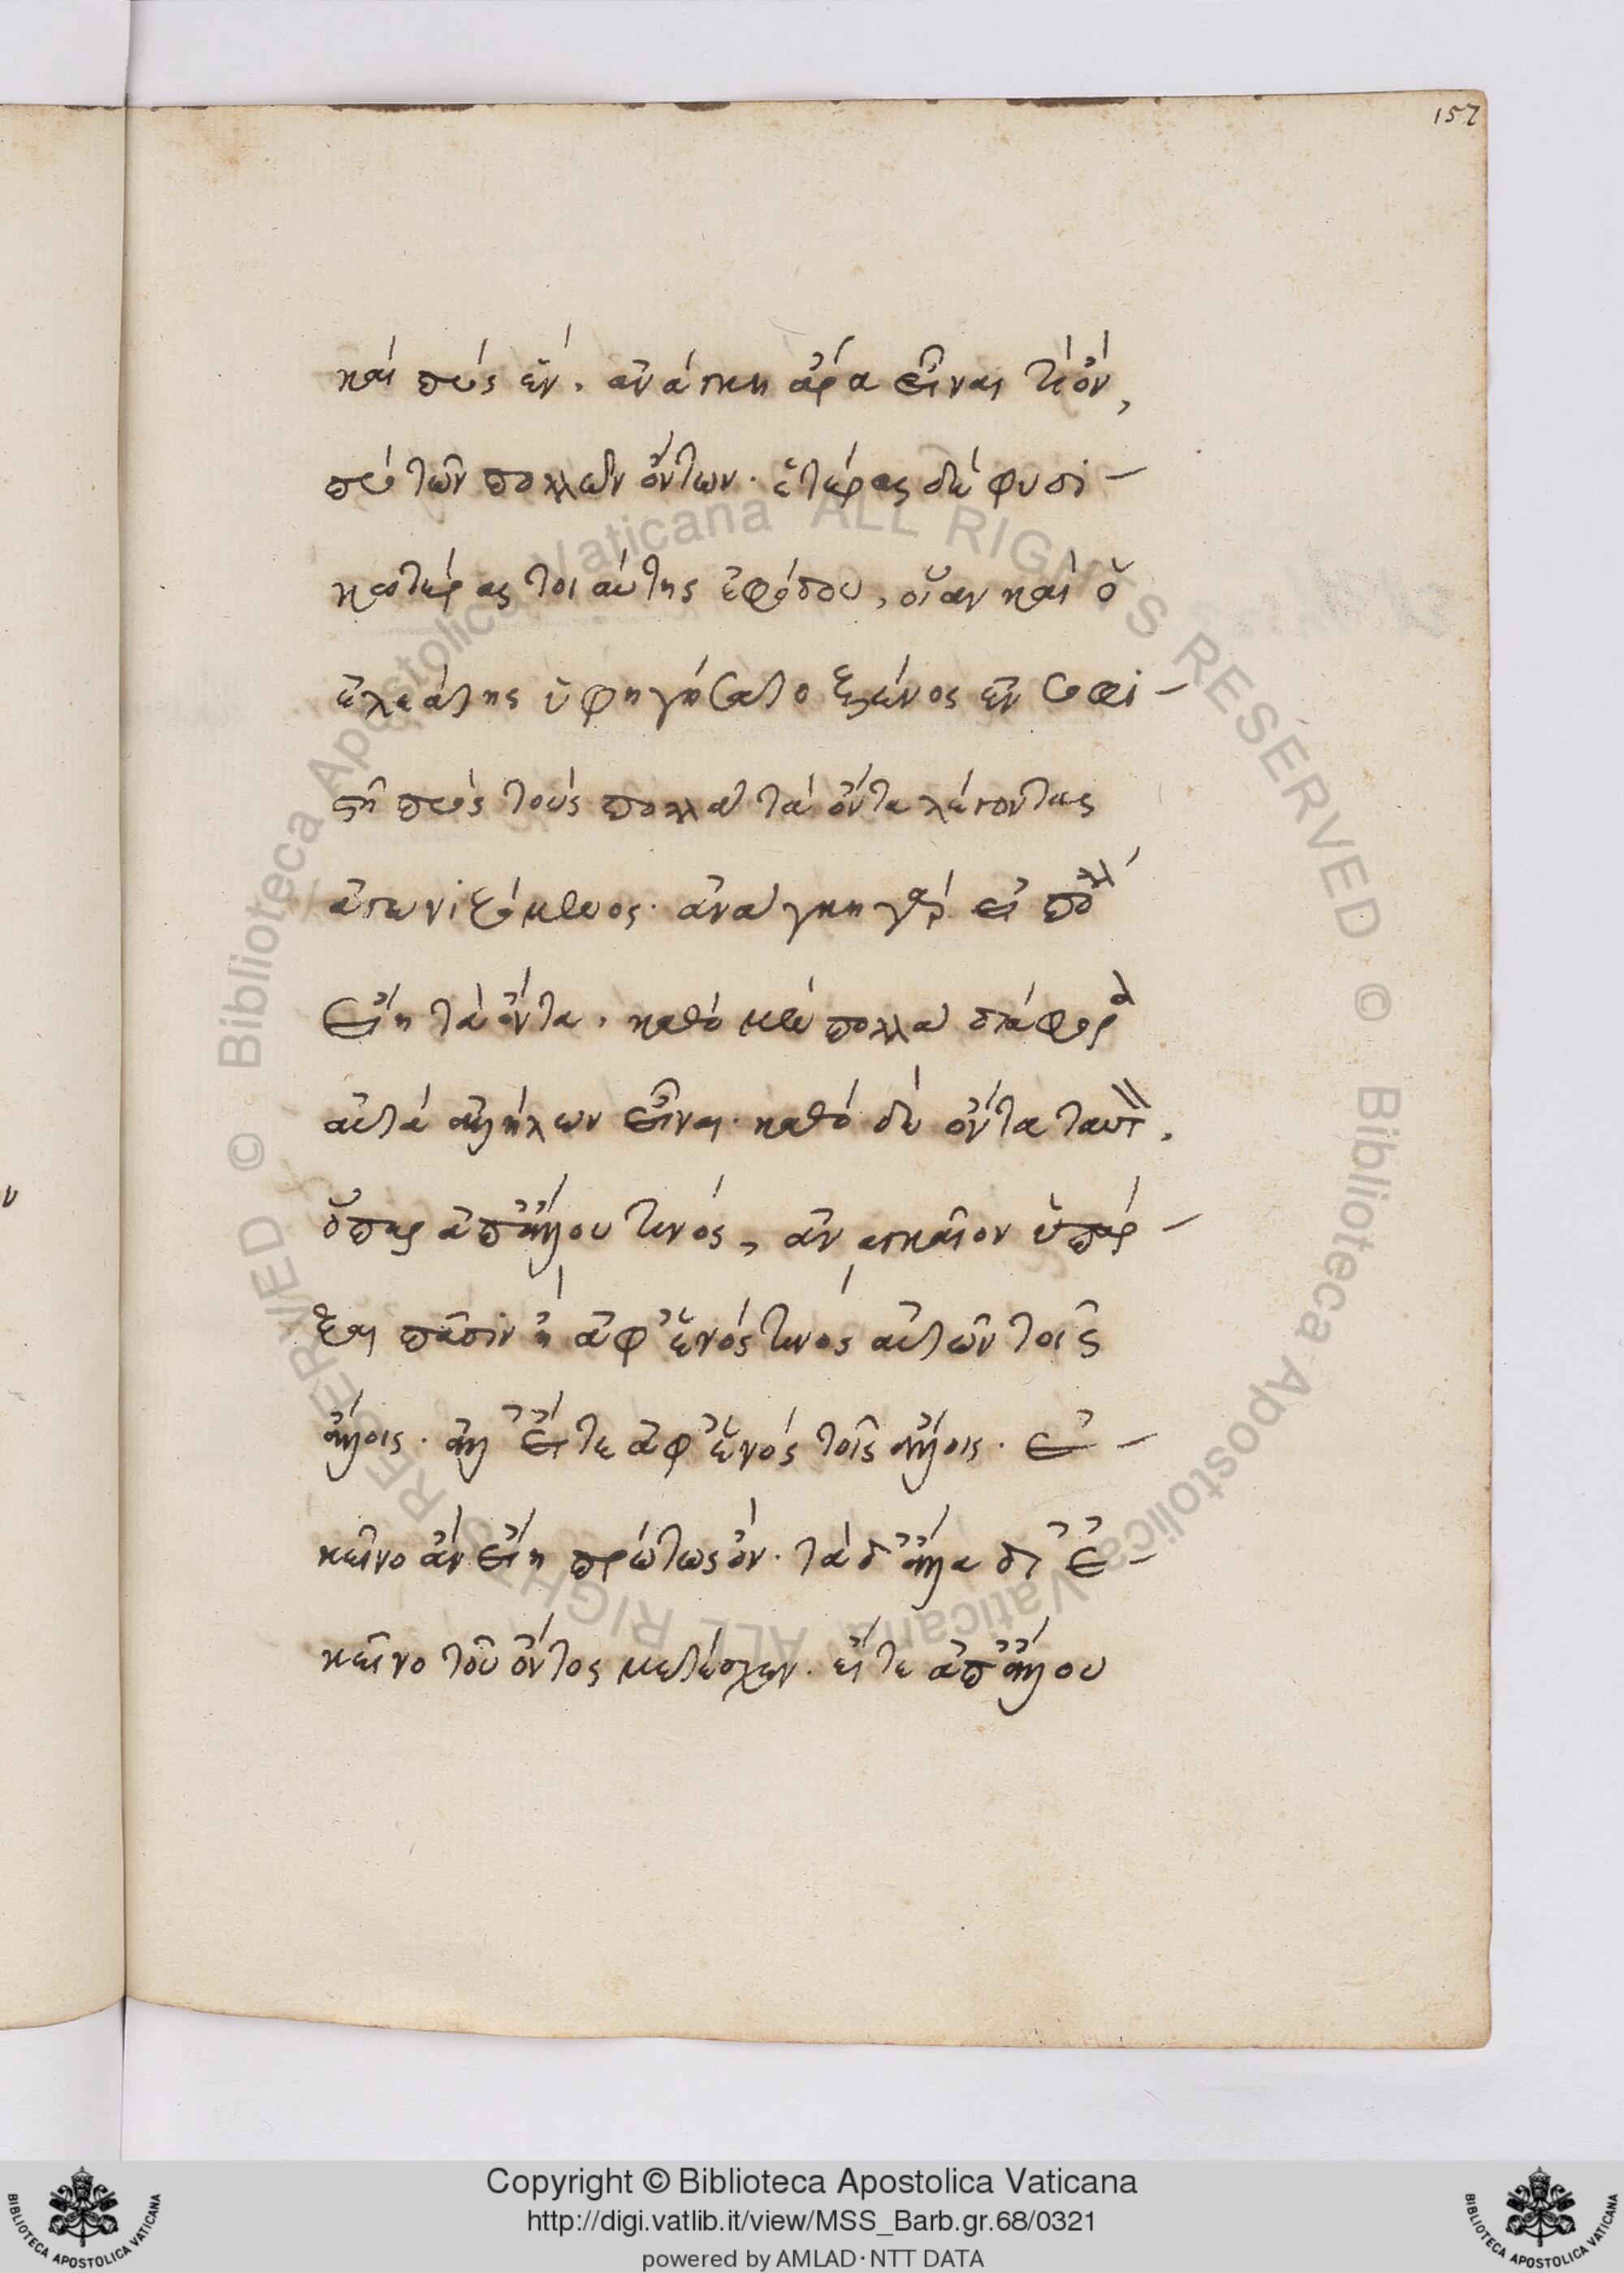 157
καὶ πρὸς ἕν. ἀνάγκη ἄρα εἶναι τὸ ὄν,
πρὸ τῶν πολλῶν ὄντων. ἑτέρας δὲ φυσι-
κωτέρας τοιαύτης ἐφόδου, οἵαν καὶ ὁ
ἐλεάτης ὑφηγήσατο ξένος ἐν σοφι-
στῇ πρὸς τοὺς πολλὰ τὰ ὄντα λέγοντας
ἀγωνιζόμενος. ἀνάγκη γὰρ εἰ πολλ
εἴη τὰ ὄντα, καθὸ μὲν πολλὰ διάφορα
αὐτὰ ἀλλήλων εἶναι. καθὸ δὲ ὄντα ταυτ,
ὅπερ ἀπ' ἄλλου τινός, ἀναγκαῖον ὑπάρ-
ξαι πᾶσιν ἢ ἀφ' ἑνός τινος αὐτῶν τοῖς
ἄλλοις. ἀλλ' εἴτε ἀφ' ἑνὸς τοῖς ἄλλοις. ἐ-
κεῖνο ἂν εἴη πρώτως ὄν. τὰ δ' ἄλλα δι' ἐ-
κεῖνο τοῦ ὄντος μετέσχεν. εἴτε ἀπ' ἄλλου
Copyright © Biblioteca Apostolica Vaticana
http://digi.vatlib.it/view/MSS_Barb.gr.68/0321
powered by AMLAD · NTT DATA